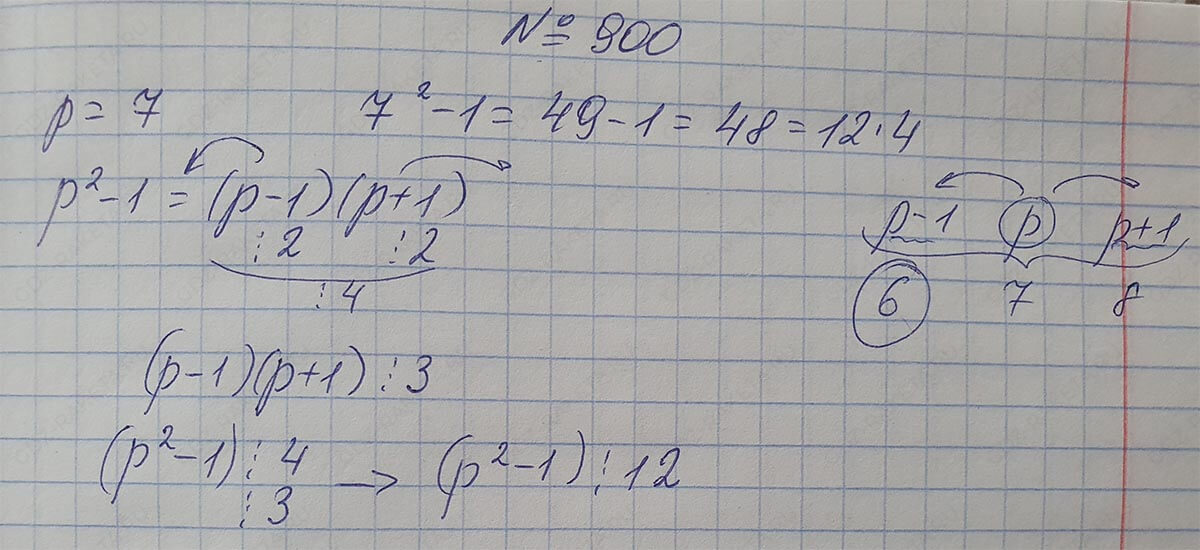 № 900
p = 7 7² - 1 = 49 - 1 = 48 = 12 · 4
p² - 1 = (p - 1)(p + 1)
⋮ 2 ⋮ 2
⋮ 4
p - 1 p p + 1
6 7 8
(p - 1)(p + 1) ⋮ 3
(p² - 1) ⋮ 4 → (p² - 1) ⋮ 12
⋮ 3